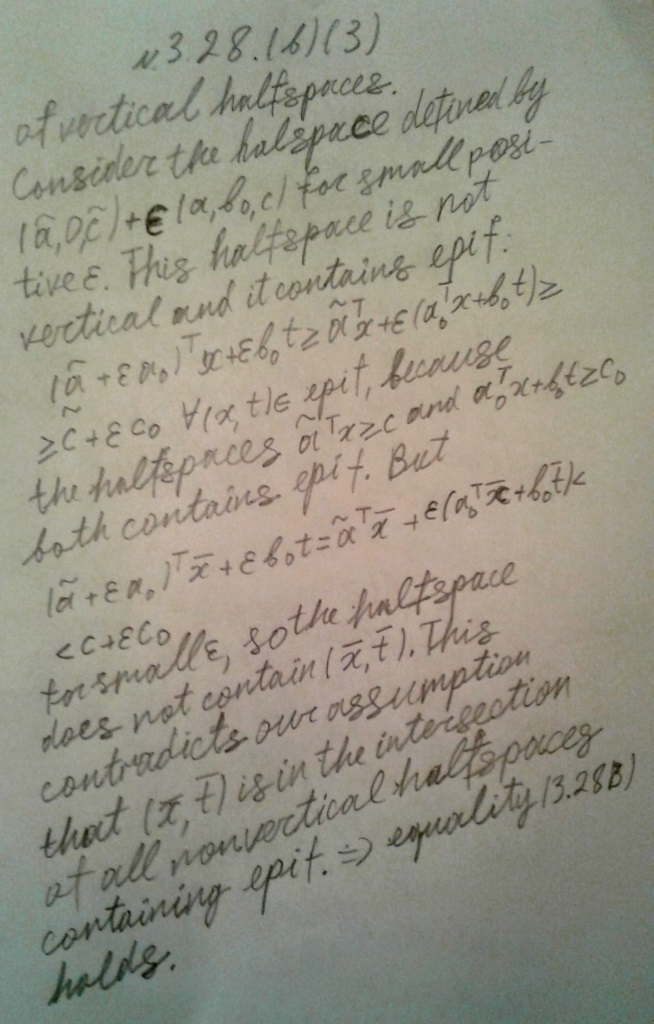 N3.28.(b)(3)
of vertical halfspaces.
Consider the halspace defined by
(ã,0,c̃)+ε(a,b₀,c) for small posi-
tive ε. This halfspace is not
vertical and it contains epi f:
(ã+εa₀)ᵀx+εb₀t≥ãᵀx+ε(a₀ᵀx+b₀t)≥
≥c̃+εc₀ ∀(x,t)∈ epi f, because
the halfspaces ãᵀx≥c and a₀ᵀx+b₀t≥c₀
both contains epi f. But
(ã+εa₀)ᵀx̄+εb₀t=ãᵀx̄+ε(a₀ᵀx̄+b₀t̄)<
<c+εc₀
for small ε, so the halfspace
does not contain (x̄,t̄). This
contradicts our assumption
that (x̄,t̄) is in the intersection
of all nonvertical halfspaces
containing epi f. ⇒ equality (3.28B)
holds.